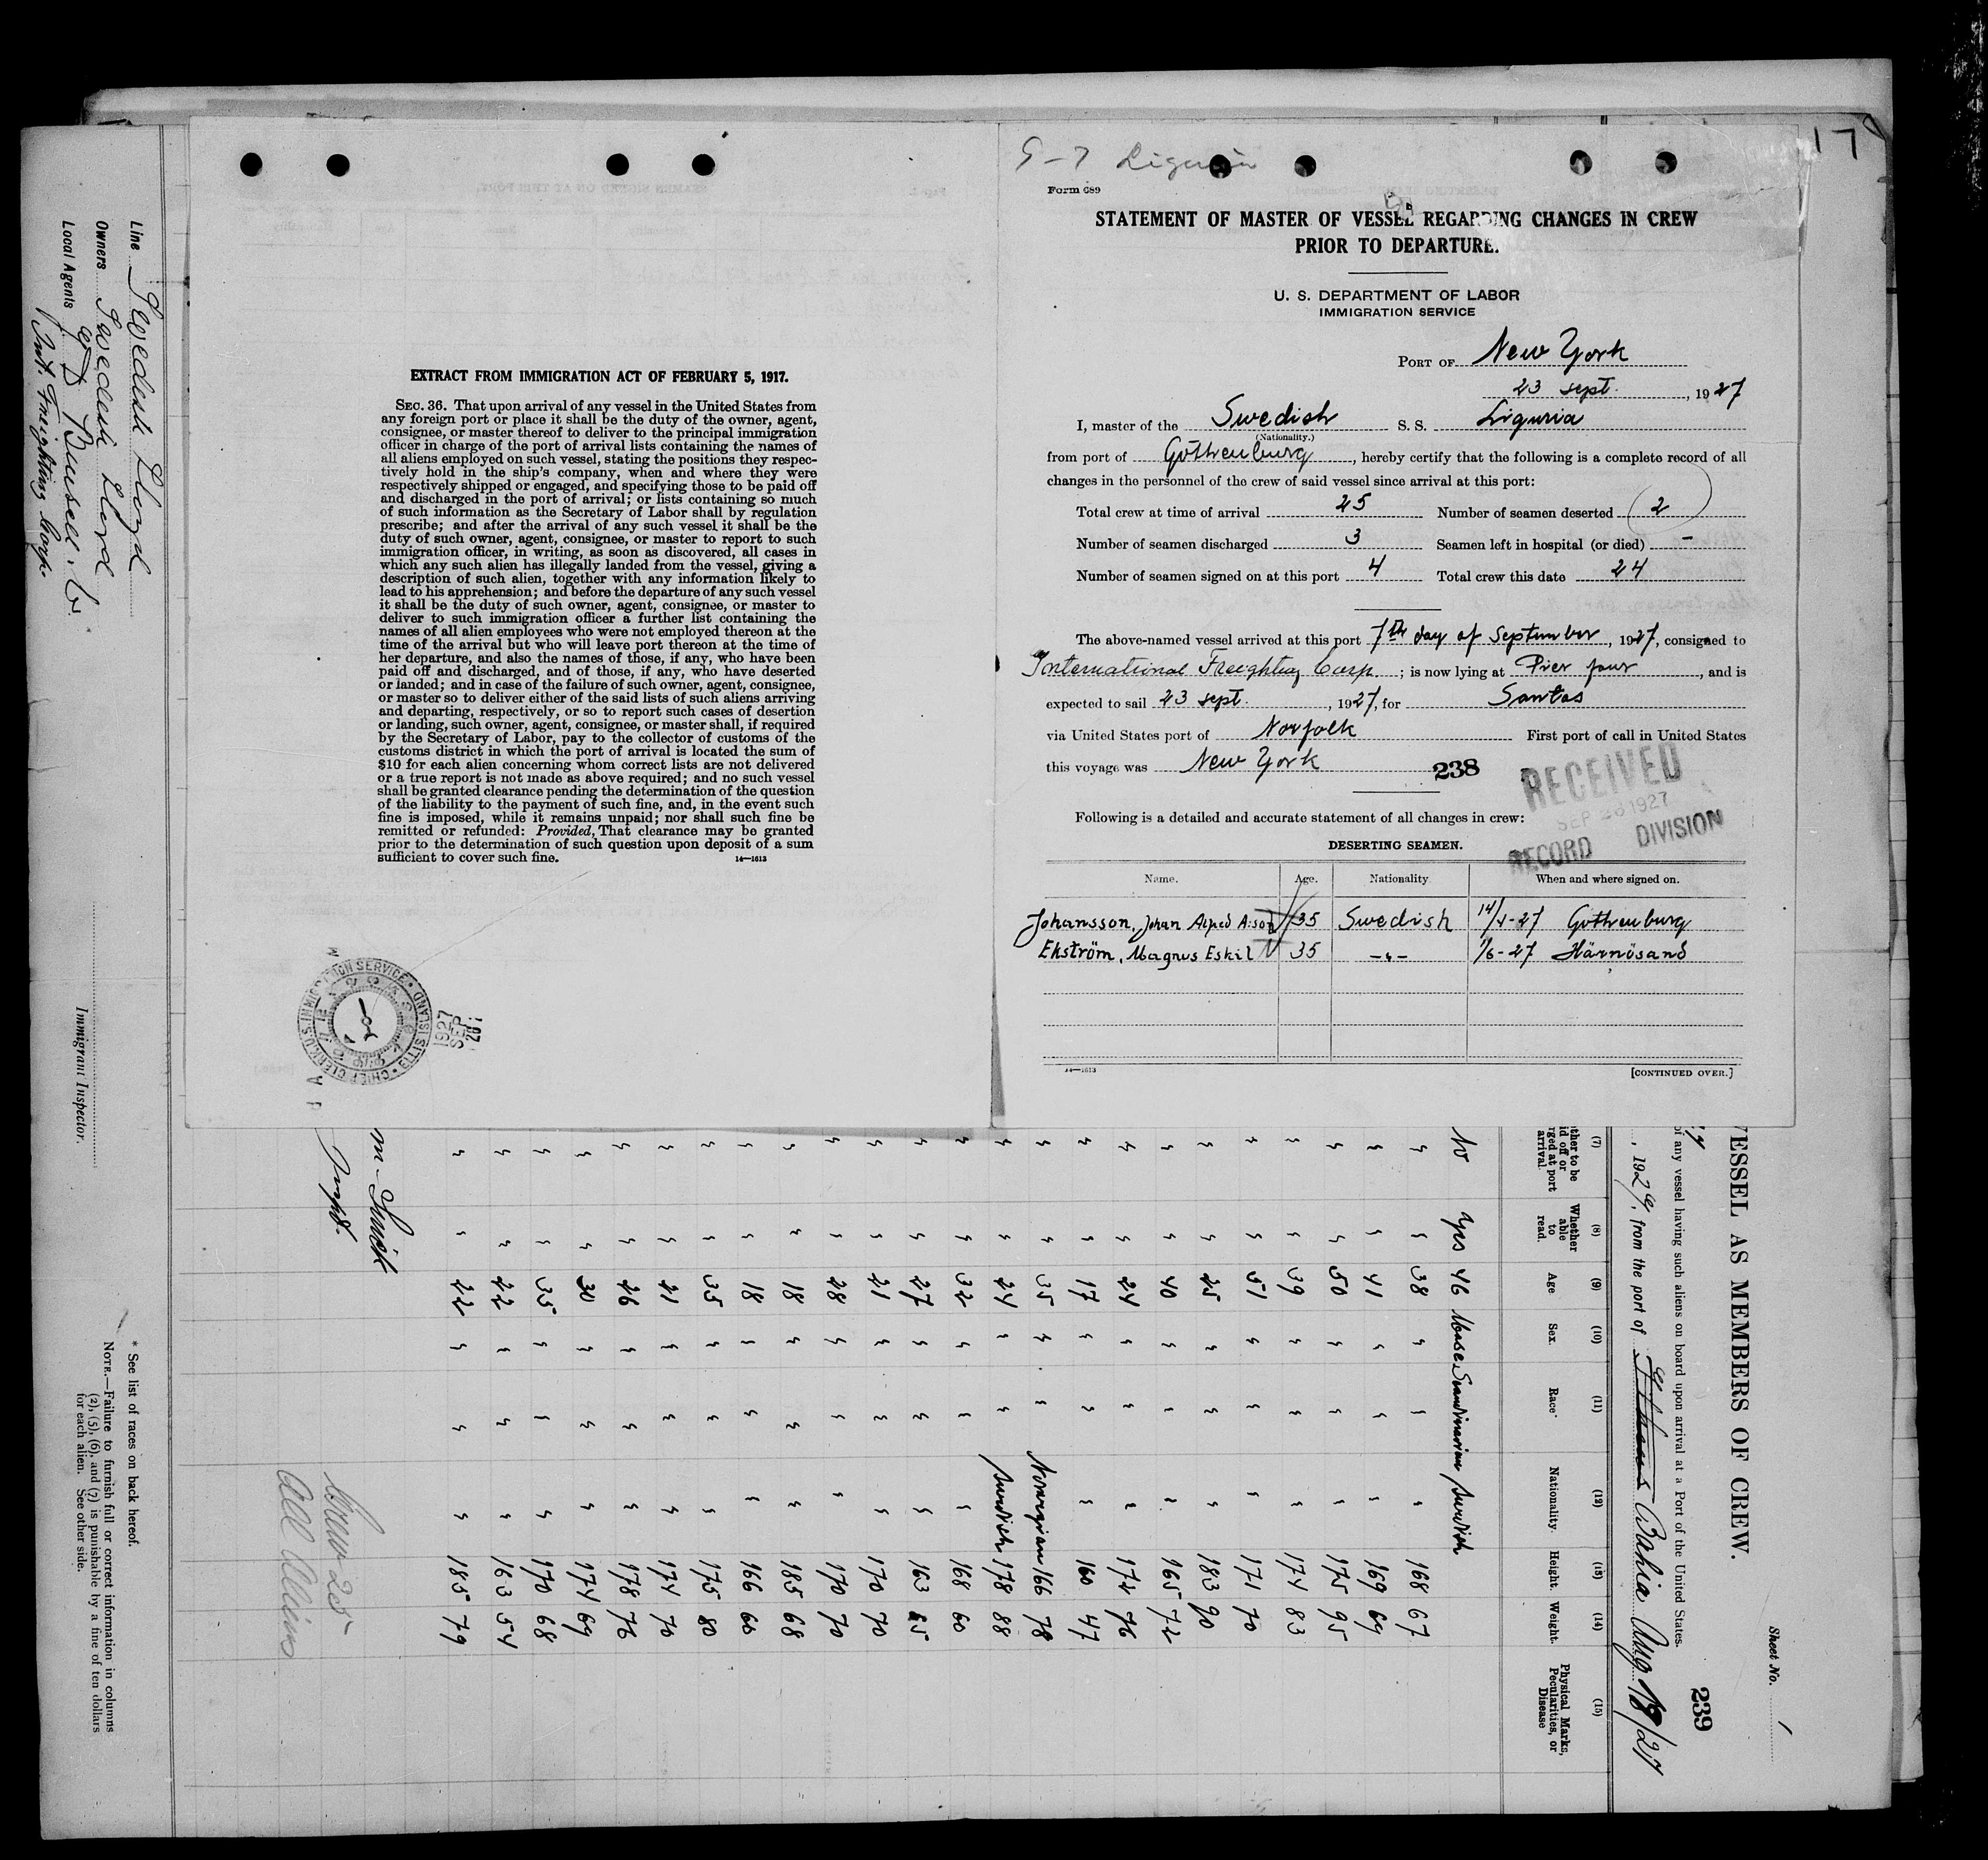 17
9-7 Liguria
Form 689
STATEMENT OF MASTER OF VESSEL REGARDING CHANGES IN CREW
PRIOR TO DEPARTURE.
U. S. DEPARTMENT OF LABOR
IMMIGRATION SERVICE
PORT OF New York
23 sept., 1927
I, master of the Swedish S. S. Liguria
(Nationality.)
from port of Göthenburg, hereby certify that the following is a complete record of all
changes in the personnel of the crew of said vessel since arrival at this port:
Total crew at time of arrival 25 Number of seamen deserted 2
Number of seamen discharged 3 Seamen left in hospital (or died) -
Number of seamen signed on at this port 4 Total crew this date 24
The above-named vessel arrived at this port 7th day of September, 1927, consigned to
International Freighting Corp.; is now lying at Pier four, and is
expected to sail 23 sept., 1927, for Santos
via United States port of Norfolk First port of call in United States
this voyage was New York 238
RECEIVED
SEP 26 1927
RECORD DIVISION
Following is a detailed and accurate statement of all changes in crew:
DESERTING SEAMEN.
Name. Age. Nationality When and where signed on.
Johansson, Johan Alfred A:son 35 Swedish 14/1-27 Gothenburg
Ekström, Magnus Eskil 35 -"- 1/6-27 Härnösand
14—1613 [CONTINUED OVER.]
EXTRACT FROM IMMIGRATION ACT OF FEBRUARY 5, 1917.
SEC. 36. That upon arrival of any vessel in the United States from
any foreign port or place it shall be the duty of the owner, agent,
consignee, or master thereof to deliver to the principal immigration
officer in charge of the port of arrival lists containing the names of
all aliens employed on such vessel, stating the positions they respec-
tively hold in the ship's company, when and where they were
respectively shipped or engaged, and specifying those to be paid off
and discharged in the port of arrival; or lists containing so much
of such information as the Secretary of Labor shall by regulation
prescribe; and after the arrival of any such vessel it shall be the
duty of such owner, agent, consignee, or master to report to such
immigration officer, in writing, as soon as discovered, all cases in
which any such alien has illegally landed from the vessel, giving a
description of such alien, together with any information likely to
lead to his apprehension; and before the departure of any such vessel
it shall be the duty of such owner, agent, consignee, or master to
deliver to such immigration officer a further list containing the
names of all alien employees who were not employed thereon at the
time of the arrival but who will leave port thereon at the time of
her departure, and also the names of those, if any, who have been
paid off and discharged, and of those, if any, who have deserted
or landed; and in case of the failure of such owner, agent, consignee,
or master so to deliver either of the said lists of such aliens arriving
and departing, respectively, or so to report such cases of desertion
or landing, such owner, agent, consignee, or master shall, if required
by the Secretary of Labor, pay to the collector of customs of the
customs district in which the port of arrival is located the sum of
$10 for each alien concerning whom correct lists are not delivered
or a true report is not made as above required; and no such vessel
shall be granted clearance pending the determination of the question
of the liability to the payment of such fine, and, in the event such
fine is imposed, while it remains unpaid; nor shall such fine be
remitted or refunded: Provided, That clearance may be granted
prior to the determination of such question upon deposit of a sum
sufficient to cover such fine. 14—1613
CHIEF CLERK, U.S. IMMIGRATION SERVICE · ELLIS ISLAND
1927
SEP
26
Sheet No. 1
239
VESSEL AS MEMBERS OF CREW.
of any vessel having such aliens on board upon arrival at a Port of the United States.
, 1927, from the port of Bahia Aug 18/27
(7) (8) (9) (10) (11) (12) (13) (14) (15)
Whether able to read. Age Sex. Race* Nationality. Height. Weight. Physical Marks, Peculiarities, or Disease
No Yes 46 Male Scandinavian Swedish
" " 38 " " " 168 67
" " 41 " " " 169 69
" " 50 " " " 175 95
" " 39 " " " 174 83
" " 51 " " " 171 70
" " 25 " " " 183 90
" " 40 " " " 165 72
" " 24 " " " 172 76
" " 17 " " " 160 47
" " 35 " " Norwegian 166 78
" " 24 " " Swedish 178 88
" " 32 " " " 168 60
" " 27 " " " 163 65
" " 21 " " " 170 70
" " 28 " " " 170 70
" " 18 " " " 185 68
" " 18 " " " 166 60
" " 35 " " " 175 80
" " 21 " " " 174 70
" " 26 " " " 178 76
" " 30 " " " 174 69
" " 35 " " " 170 68
" " 22 " " " 163 54
" " 22 " " " 185 79
Crew 25
All Aliens
Line Swedish Lloyd
Owners Swedish Lloyd
Local Agents
Int. Freighting Corp.
Immigrant Inspector.
* See list of races on back hereof.
NOTE.—Failure to furnish full or correct information in columns
(2), (5), (6), and (7) is punishable by a fine of ten dollars
for each alien. See other side.